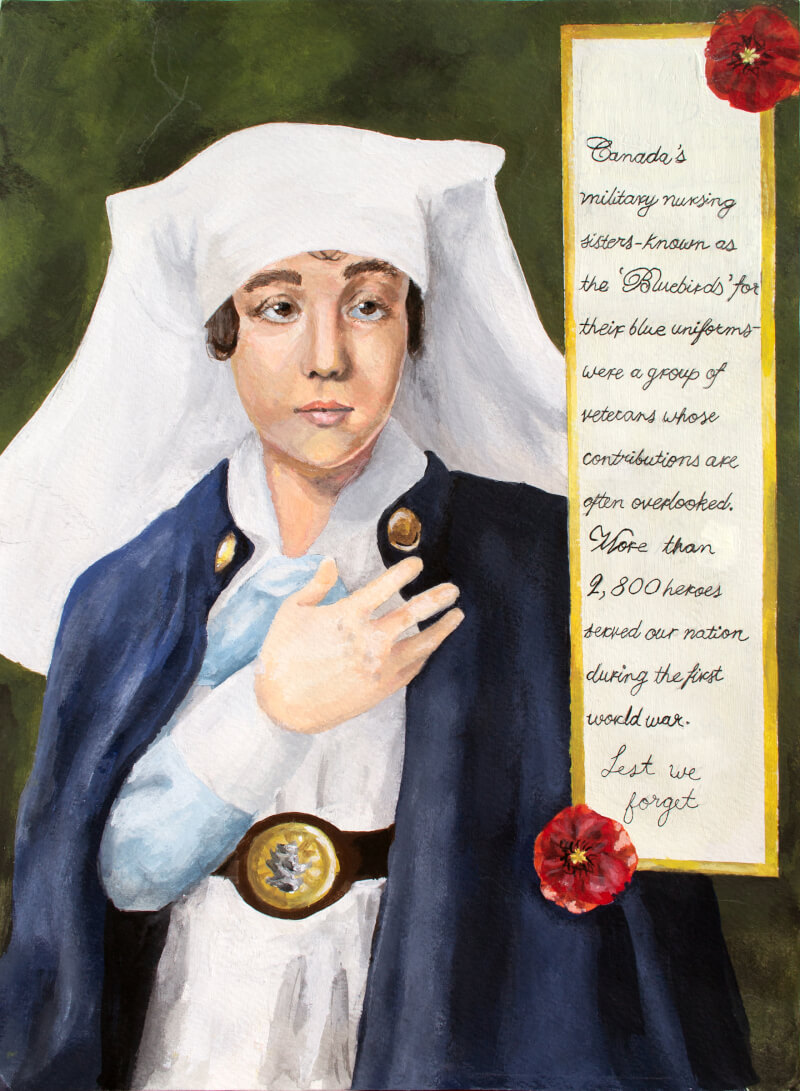 Canada's
military nursing
sisters-known as
the 'Bluebirds' for
their blue uniforms-
were a group of
veterans whose
contributions are
often overlooked.
More than
2,800 heroes
served our nation
during the first
world war.
Lest we
forget